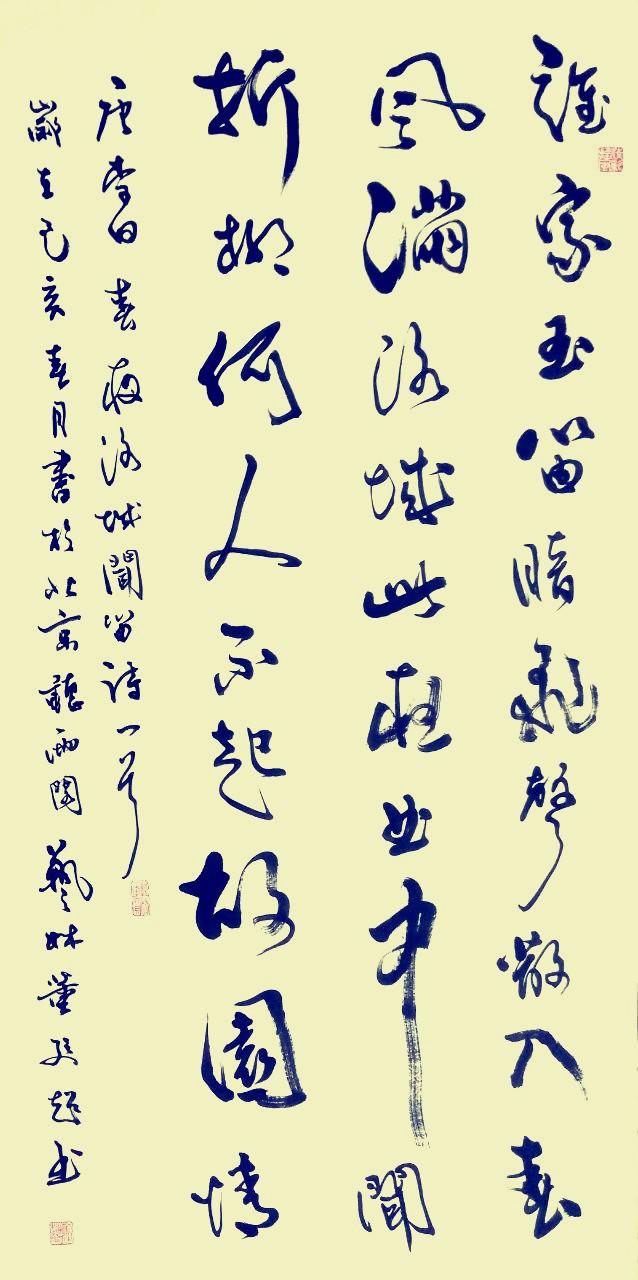 誰家玉笛暗飛聲散入春
風滿洛城此夜曲中聞
折柳何人不起故園情
唐李白春夜洛城聞笛詩一首
歲在己亥春月書於北京聽雨閣藝林董超书